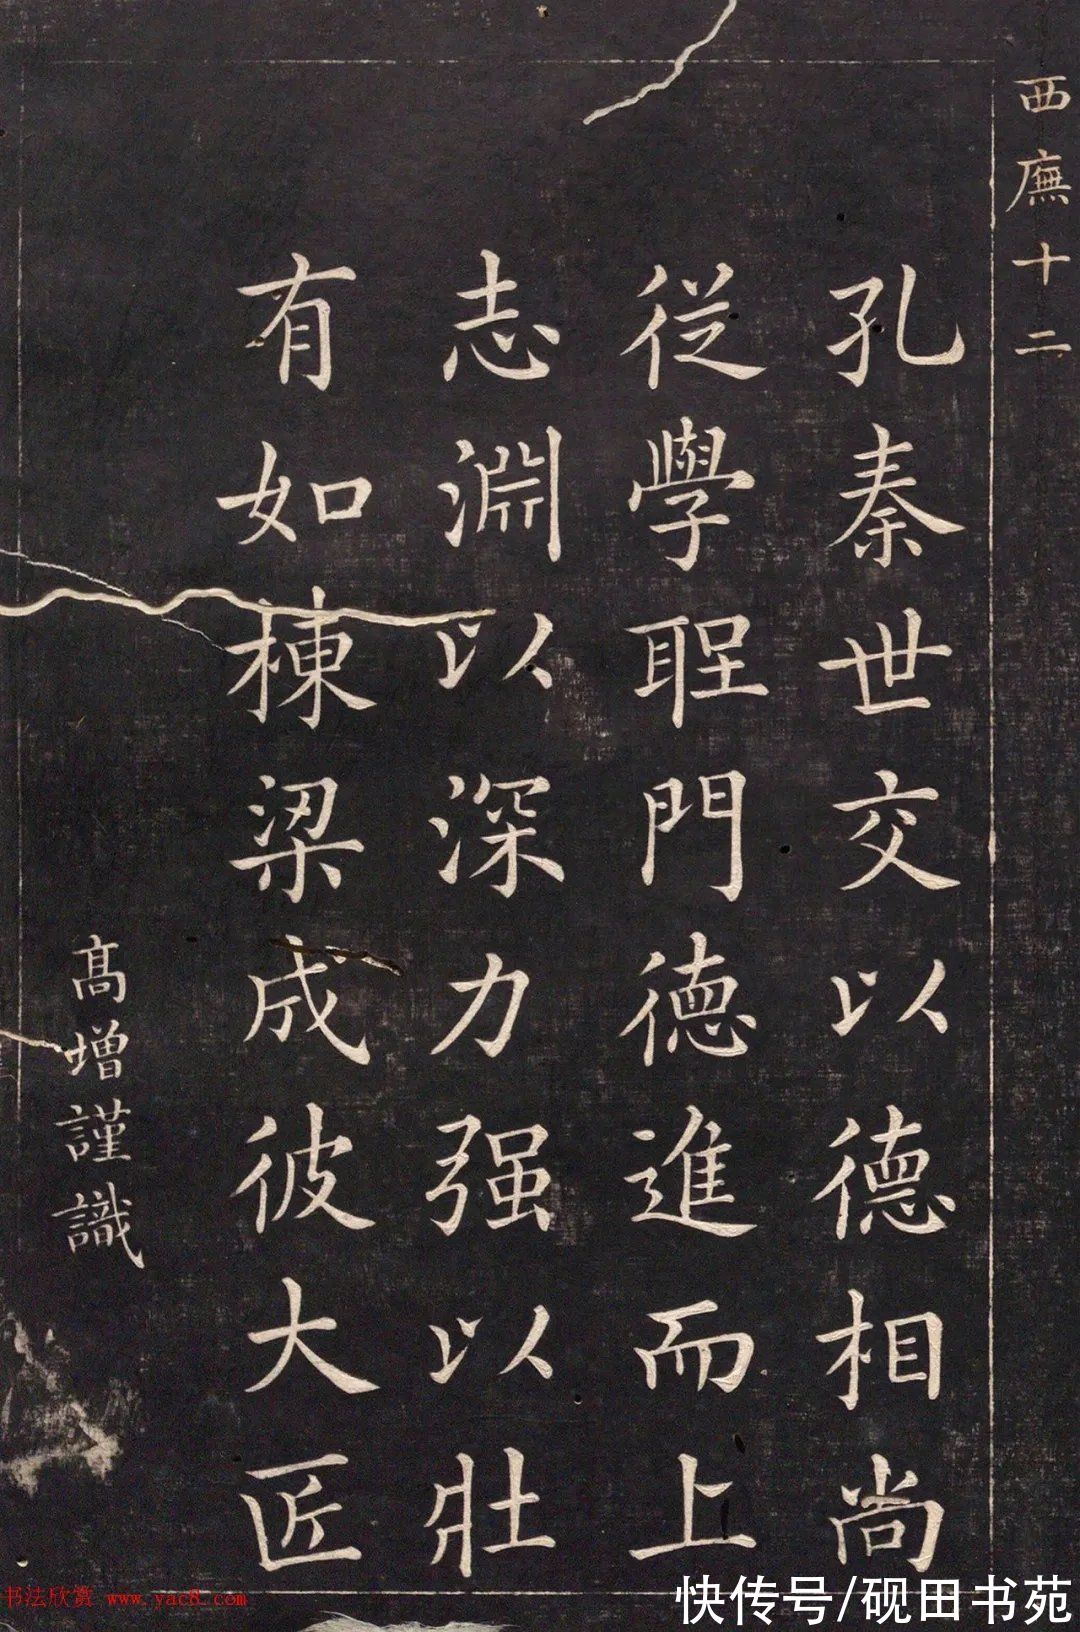 西廡十二
孔秦世交以德相尚
從學聖門德進而上
志淵以深力强以壯
有如棟梁成彼大匠
高增謹識
书法欣赏 www.yac8.com
快传号/砚田书苑